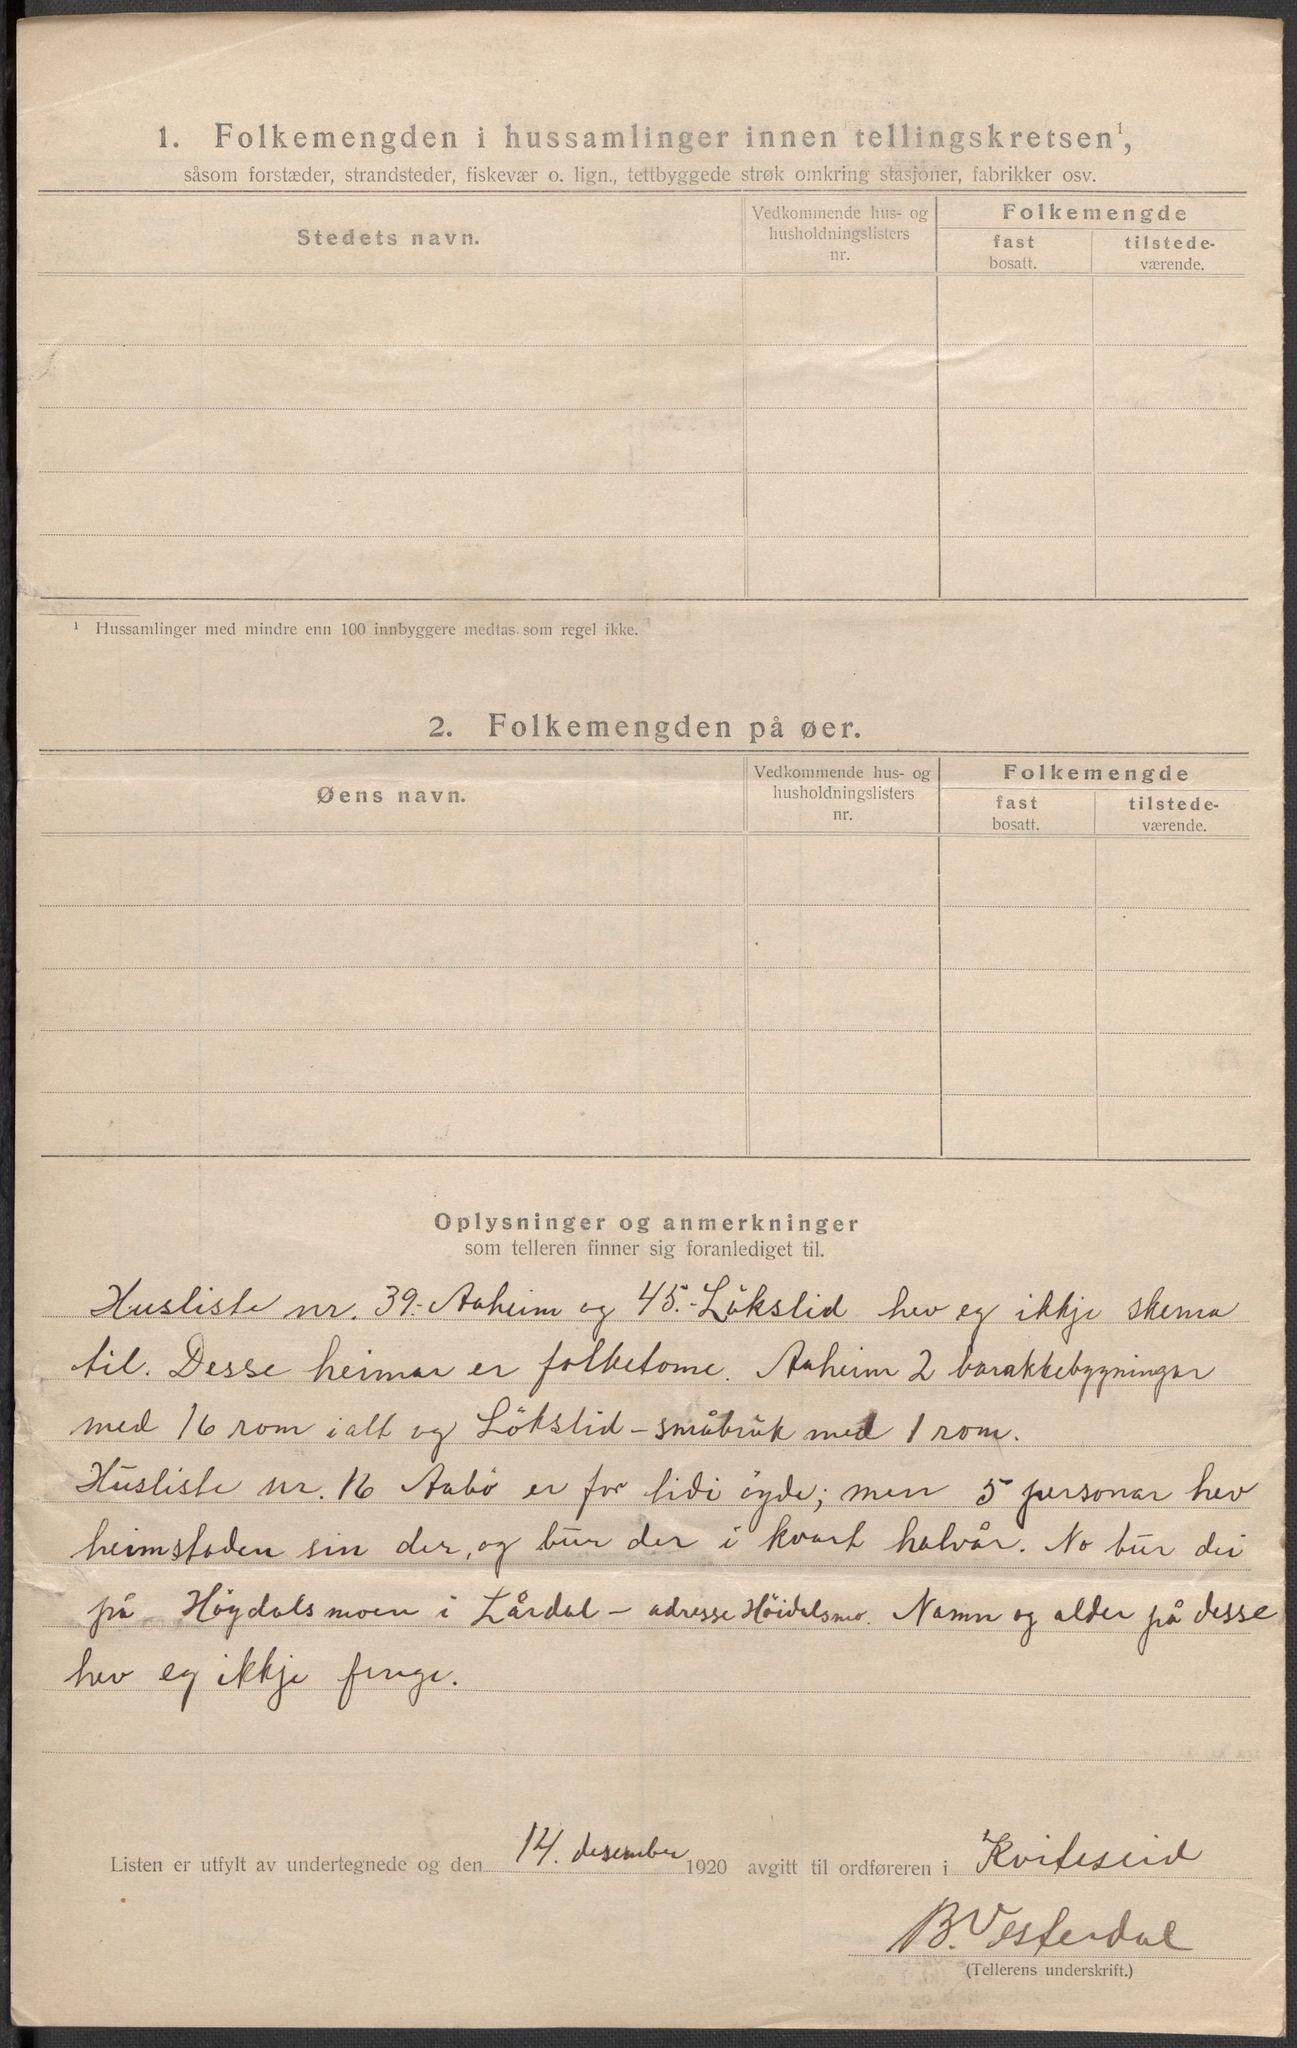 1. Folkemengden i hussamlinger innen tellingskretsen¹,
såsom forstæder, strandsteder, fiskevær o. lign., tettbyggede strøk omkring stasjoner, fabrikker osv.
Stedets navn.
Vedkommende hus- og
husholdningslisters
nr.
Folkemengde
fast
bosatt.
tilstede-
værende.
¹ Hussamlinger med mindre enn 100 innbyggere medtas som regel ikke.
2. Folkemengden på øer.
Øens navn.
Vedkommende hus- og
husholdningslisters
nr.
Folkemengde
fast
bosatt.
tilstede-
værende.
Oplysninger og anmerkninger
som telleren finner sig foranlediget til.
Husliste nr. 39.- Aaheim og 45.- Lökslid hev eg ikkje skema
til. Desse heimar er folketome. Aaheim 2 barakkebygningar
med 16 rom ialt og Lökslid - småbruk med 1 rom.
Husliste nr. 16 Aabö er for tidi öyde; men 5 personar hev
heimstaden sin der, og bur der i kvart halvår. No bur dei
på Höydalsmoen i Lårdal - adresse Höidalsmo. Namn og alder på desse
hev eg ikkje finge.
Listen er utfylt av undertegnede og den 14. desember 1920 avgitt til ordføreren i Kviteseid
B. Vesterdal
(Tellerens underskrift.)